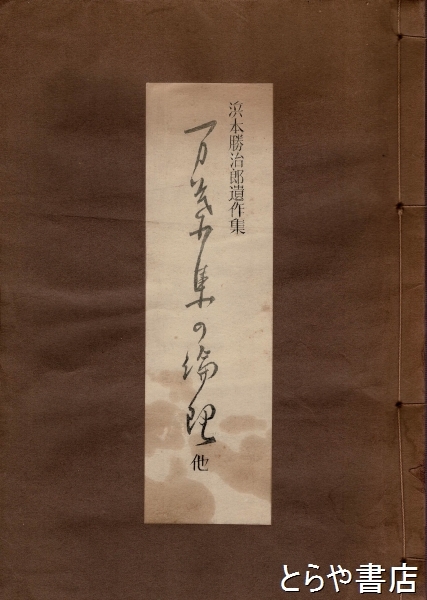 浜本勝治郎遺作集
万葉集の倫理
他
とらや書店